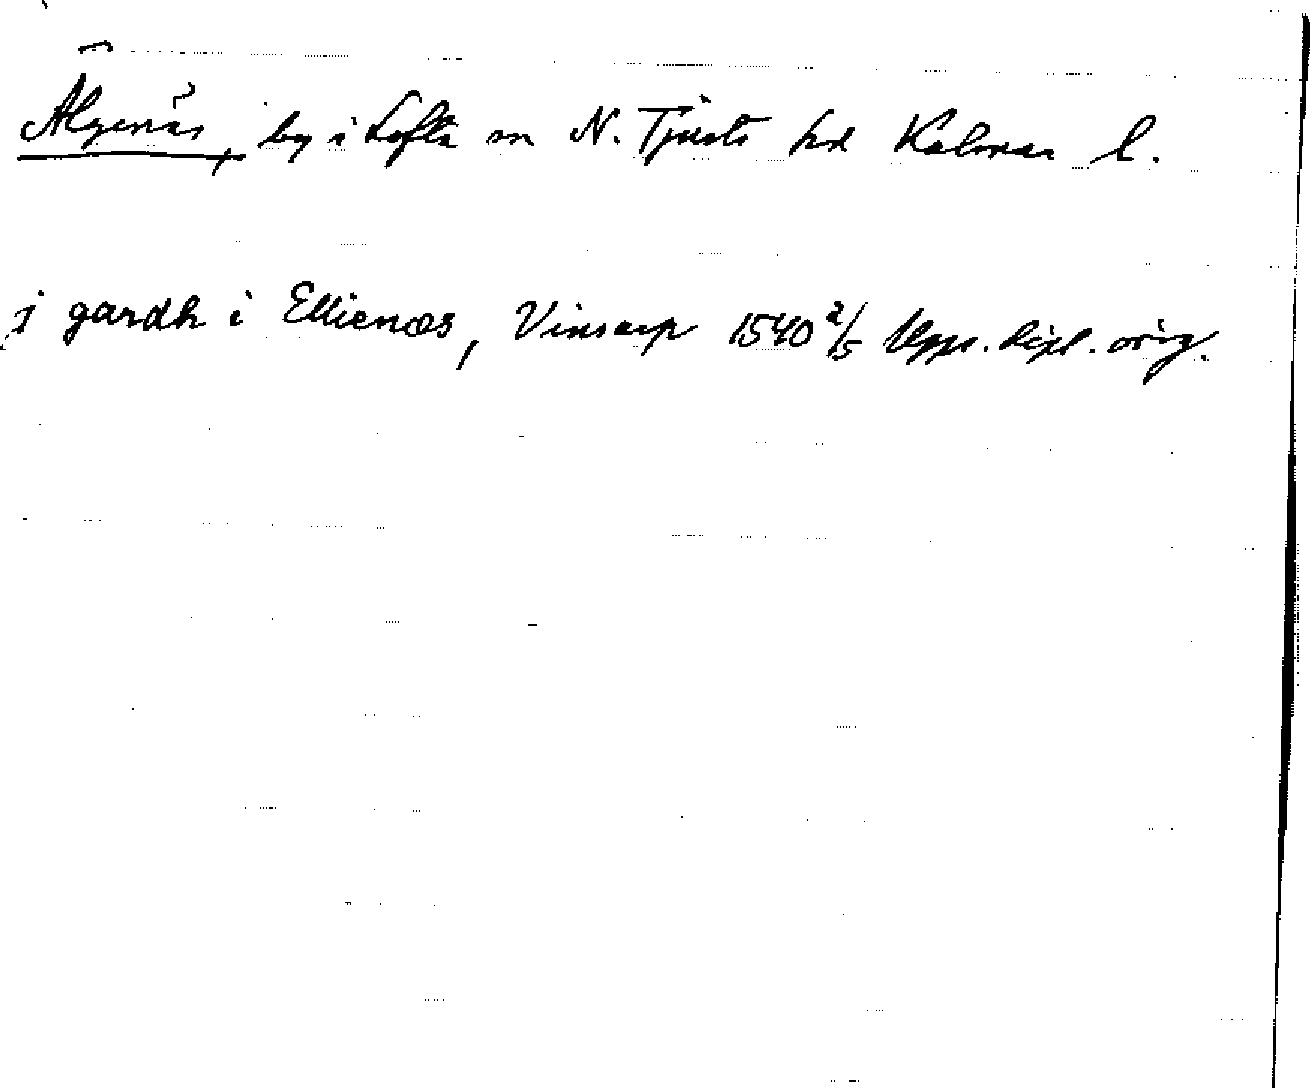 Älgenäs, by i Lofta sn N. Tjusts hd Kalmar l.
j gardh i Ellienæs, Vinsarp 1540 2/5 Upps. dipl. orig.